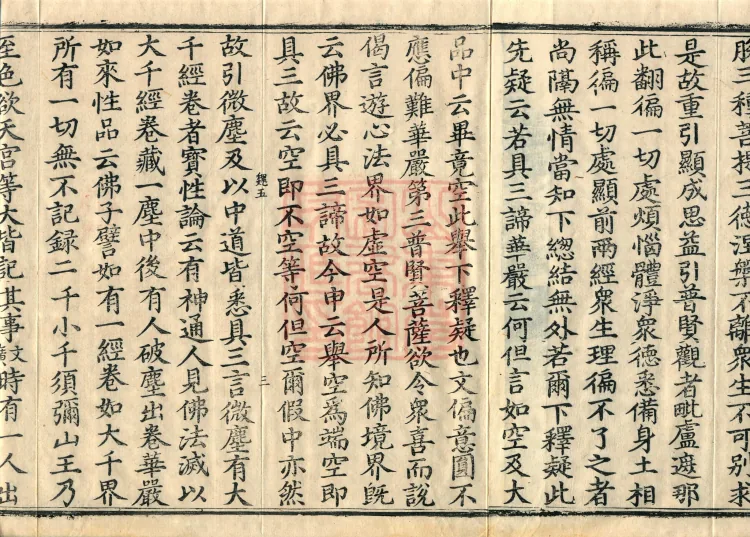 脫三種菩提三德涅槃不離衆生不可別求
是故重引顯成思益引普賢觀者毗盧遮那
此翻徧一切處煩惱體淨衆德悉備身土相
稱徧一切處顯前兩經衆生理徧不了之者
尚隔無情當知下總結無外若爾下釋疑此
先疑云若具三諦華嚴云何但言如空及大
品中云畢竟空此舉下釋疑也文偏意圓不
應偏難華嚴第三普賢菩薩欲令衆喜而說
偈言遊心法界如虛空是人所知佛境界旣
云佛界必具三諦故今申云舉空爲端空即
具三故云空即不空等何但空爾假中亦然
魏五
三
故引微塵及以中道皆悉具三言微塵有大
千經卷者寶性論云有神通人見佛法滅以
大千經卷藏一塵中後有人破塵出卷華嚴
如來性品云佛子譬如有一經卷如大千界
所有一切無不記録二千小千須彌山王乃
至色欲天宮等大皆記其事文廣時有一人出